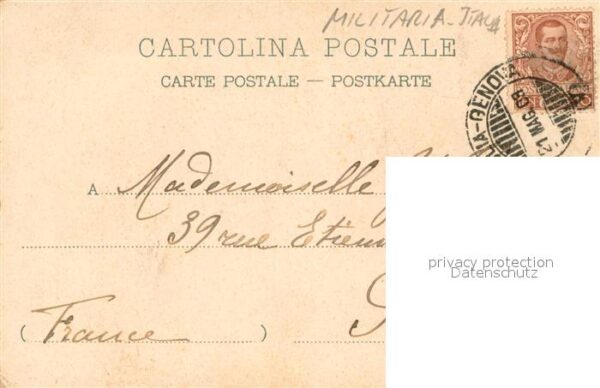 MILITARIA - ITALIA
CARTOLINA POSTALE
CARTE POSTALE — POSTKARTE
GENOVA
21 MAG. 03
A Mademoiselle
39 rue Etienn
(France)
privacy protection
Datenschutz